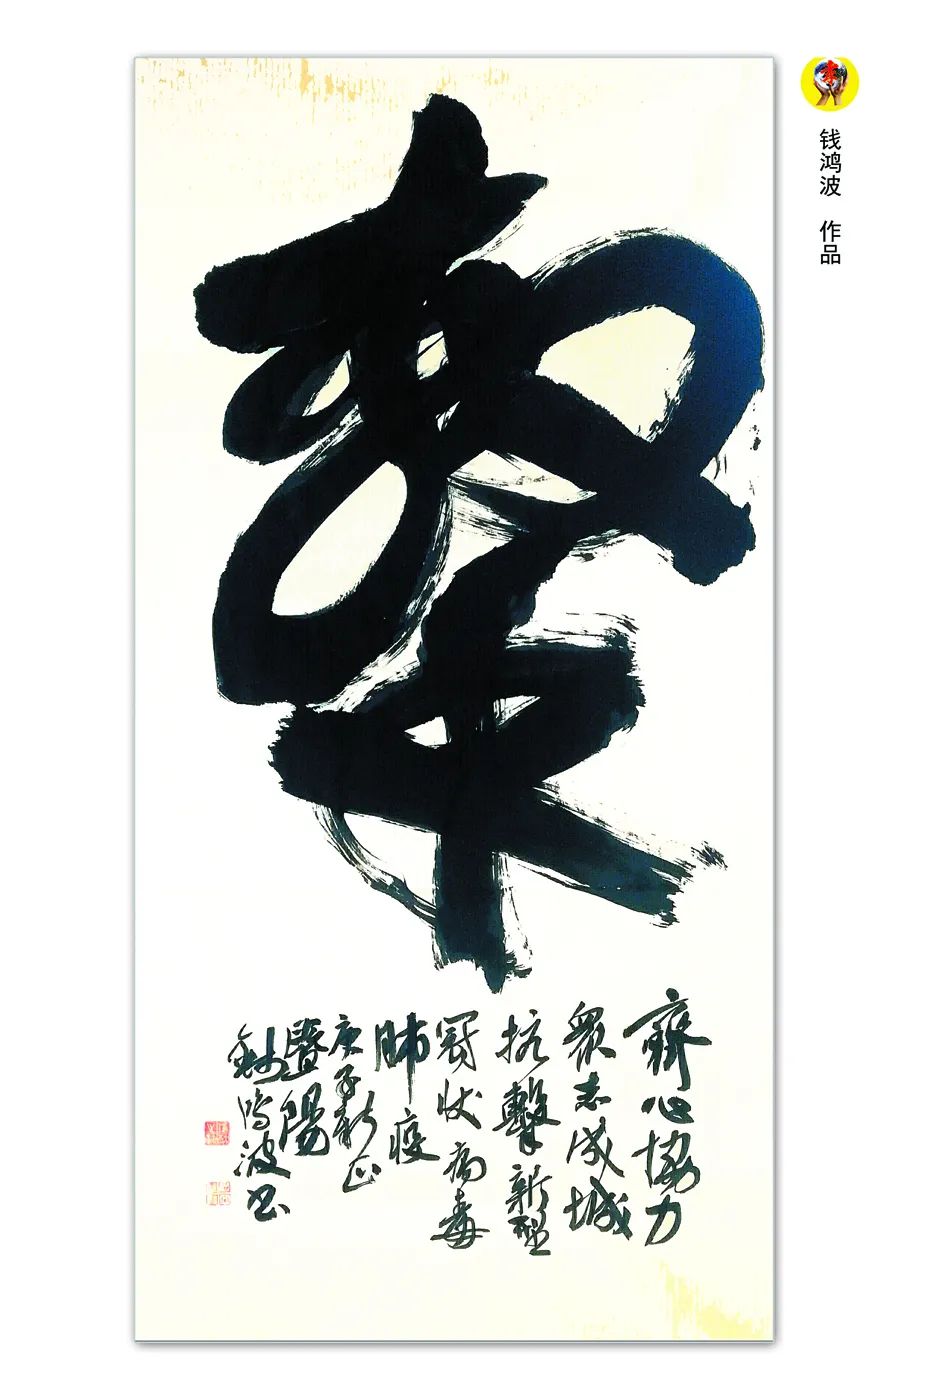 齊心協力
衆志成城
抗擊新型
冠状病毒
肺疫
庚子新正
暨陽
錢鴻波书
钱鸿波 作品